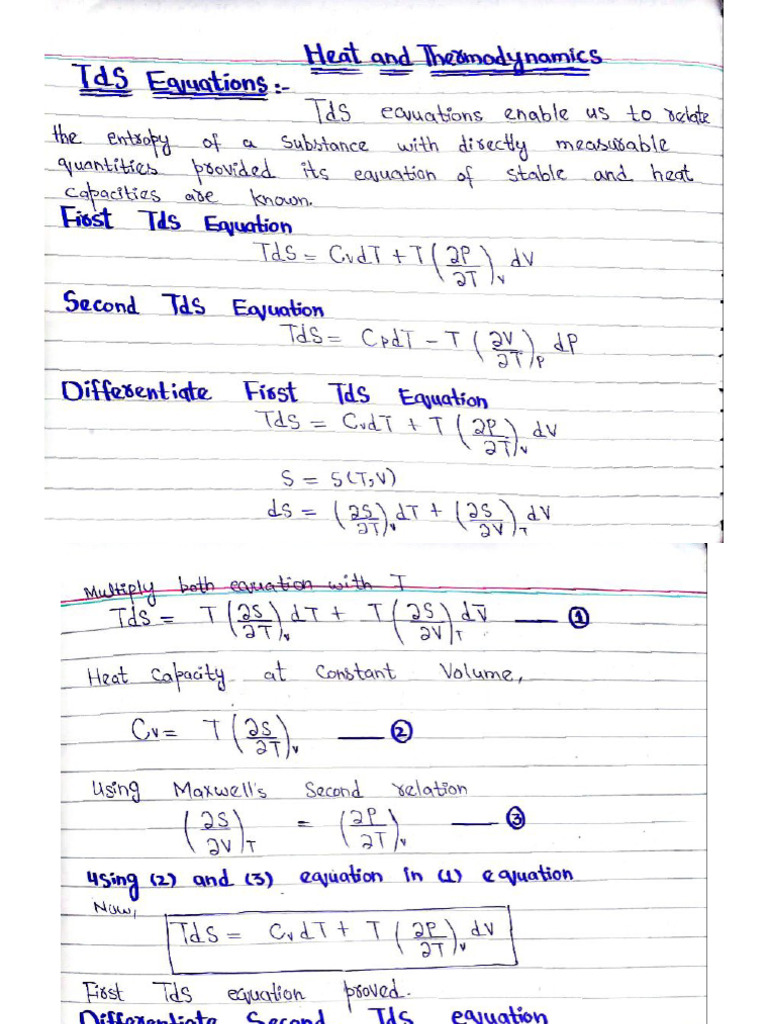 Heat and Thermodynamics
TdS Equations:-
TdS equations enable us to relate
the entropy of a substance with directly measurable
quantities provided its equation of stable and heat
capacities are known.
First TdS Equation
TdS = CvdT + T(∂P/∂T)v dV
Second TdS Equation
TdS = CpdT - T(∂V/∂T)p dP
Differentiate First TdS Equation
TdS = CvdT + T(∂P/∂T)v dV
S = S(T,V)
ds = (∂S/∂T)v dT + (∂S/∂V)T dV
Multiply both equation with T
TdS = T(∂S/∂T)v dT + T(∂S/∂V)T dV — ①
Heat Capacity at Constant Volume,
Cv = T(∂S/∂T)v — ②
Using Maxwell's Second relation
(∂S/∂V)T = (∂P/∂T)v — ③
Using (2) and (3) equation in (1) equation
Now,
TdS = CvdT + T(∂P/∂T)v dV
First TdS equation proved.
Differentiate Second TdS equation